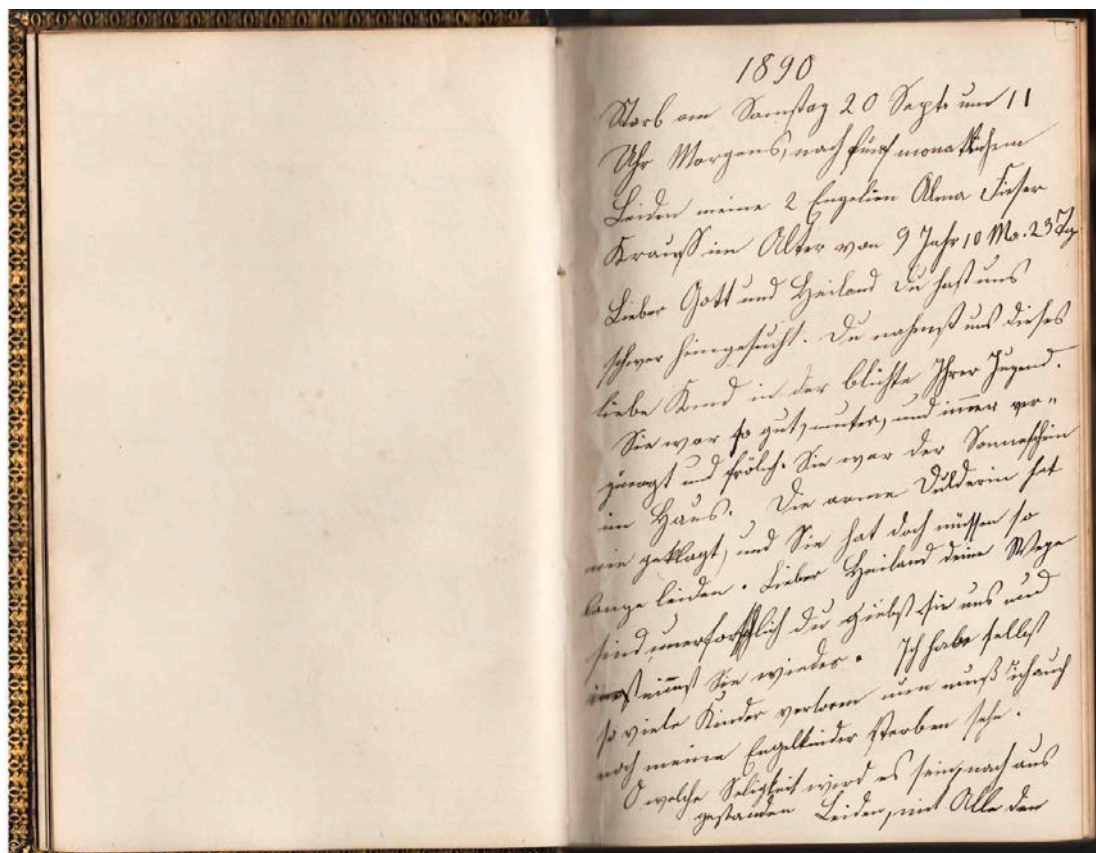 1890
Starb am Samstag 20 Sept. um 11
Uhr Morgens, nach fünf monatlichem
Leiden meine 2 Engelin Alma Fieser
Krauss im Alter von 9 Jahr 10 Mo. 23 Tag
Lieber Gott und Heiland Du hast uns
schwer heimgesucht. Du nahmst uns dieses
liebe Kind in der blühte Ihrer Jugend.
Sie war so gut, munter, und immer ver-
gnügt und frölich. Sie war der Sonneschein
im Haus. Die arme Dulderin hat
nie geklagt, und Sie hat doch müssen so
lange leiden. Lieber Heiland deine Wege
sind unerforschlich du giebst sie uns und
nimst Sie wieder. Ich habe selbst
so viele Kinder verloren nun muß ich auch
noch meine Engelkinder sterben sehn.
O welche Seligkeit wird es sein, nach aus
gestanden Leiden, mit Alle den